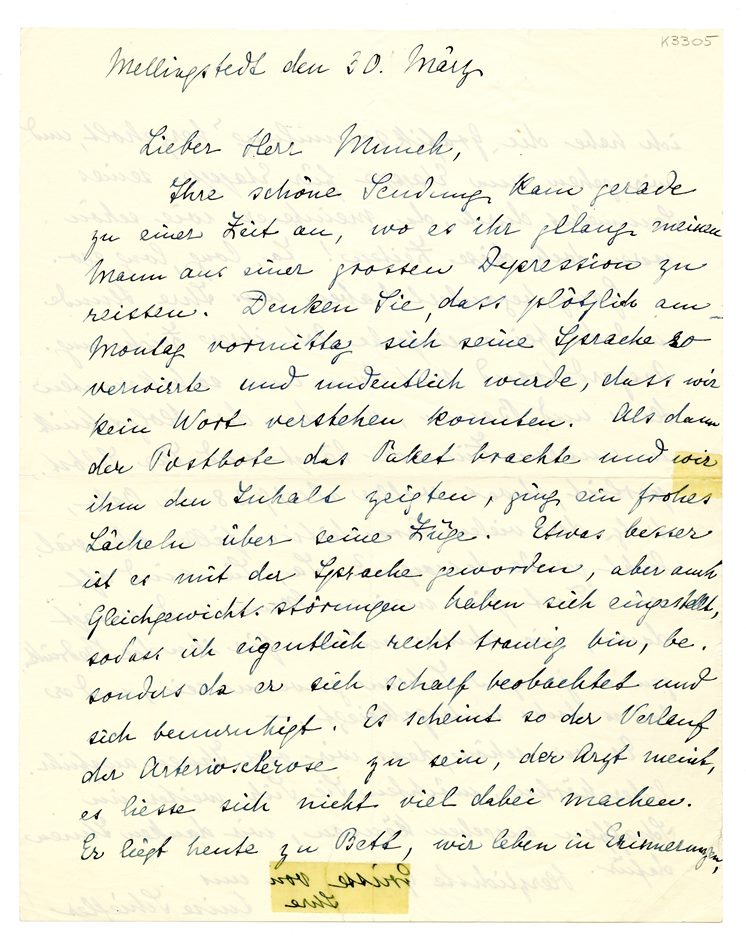 K3305
Mellingstedt den 30. März
Lieber Herr Munch,
Ihre schöne Sendung kam gerade
zu einer Zeit an, wo es ihr gelang meinen
Mann aus einer grossen Depression zu
reissen. Denken Sie, dass plötzlich am
Montag vormittag sich seine Sprache so
verwirrte und undeutlich wurde, dass wir
kein Wort verstehen konnten. Als dann
der Postbote das Paket brachte und wir
ihm den Inhalt zeigten, ging ein frohes
Lächeln über seine Züge. Etwas besser
ist es mit der Sprache geworden, aber auch
Gleichgewichtsstörungen haben sich eingestellt,
sodass ich eigentlich recht traurig bin, be-
sonders da er sich scharf beobachtet und
sich beunruhigt. Es scheint so der Verlauf
der Arteriosclerose zu sein, der Arzt meint,
es liesse sich nicht viel dabei machen.
Er liegt heute zu Bett, wir leben in Erinnerungen,
Grüsse von
Ihre